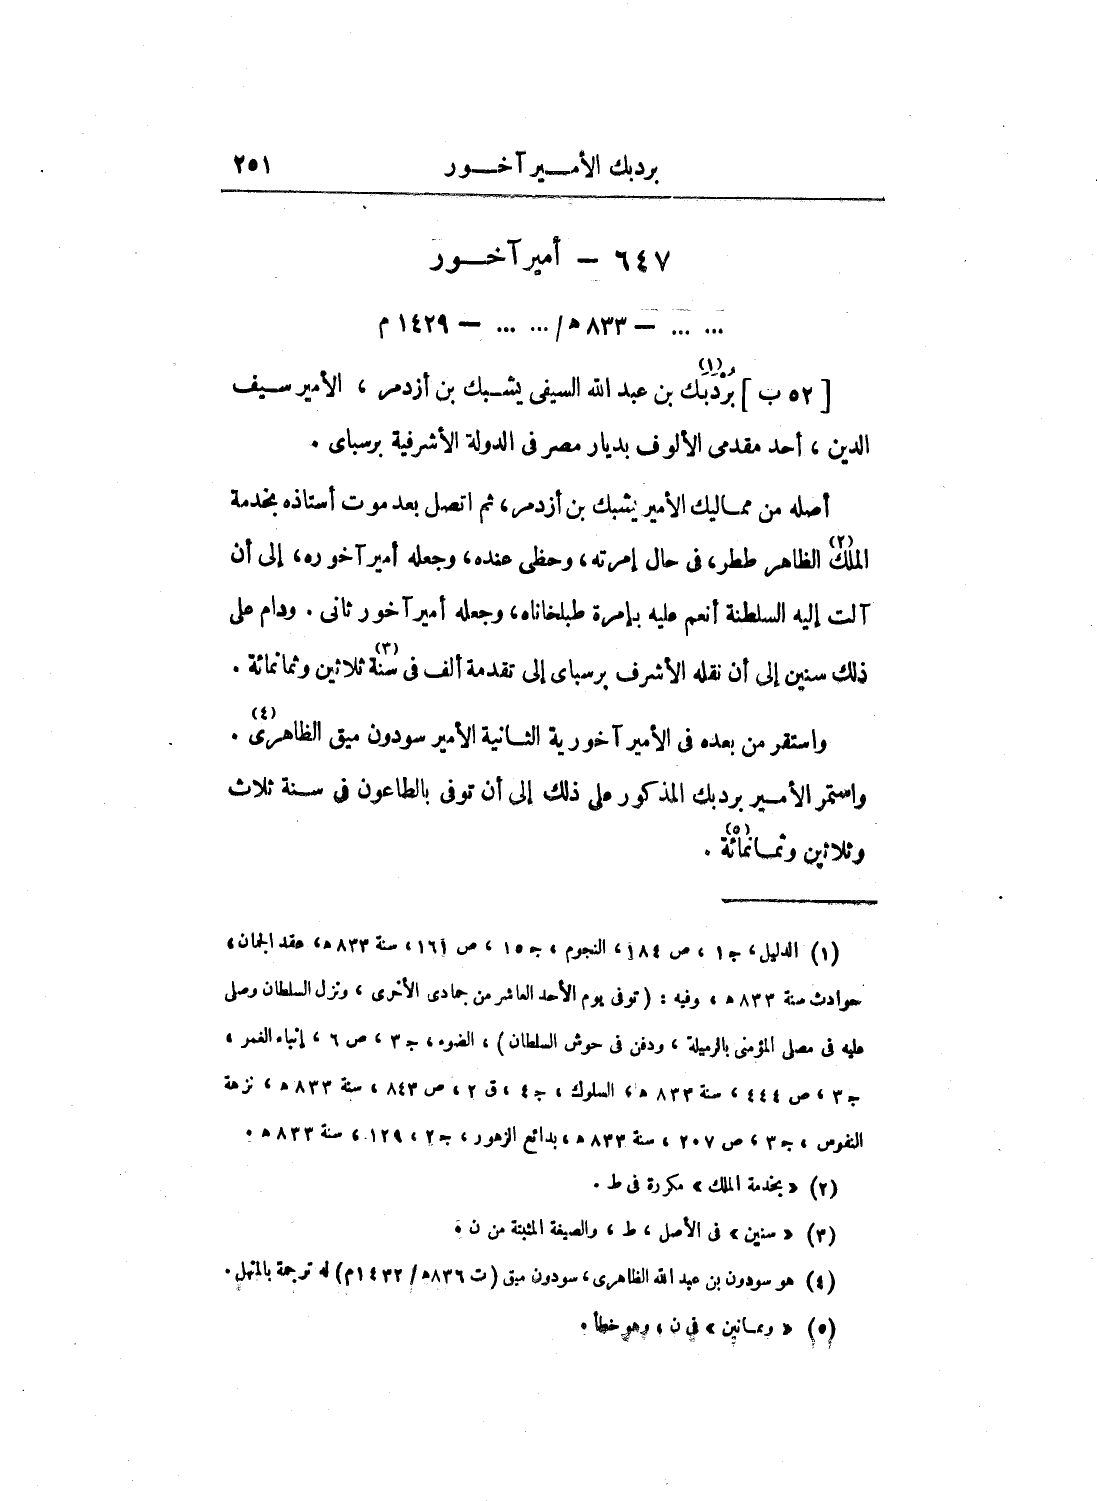 بردبك الأمير آخور ٢٥١
٦٤٧ - أمير آخور
... ... - ٨٣٣ هـ / ... ... - ١٤٢٩ م
[ ٥٢ ب ] بردبك (١) بن عبد الله السيفى يشبك بن أزدمر ، الأمير سيف
الدين ، أحد مقدمى الألوف بديار مصر فى الدولة الأشرفية برسباى .
أصله من مماليك الأمير يشبك بن أزدمر ، ثم اتصل بعد موت أستاذه بخدمة
الملك (٢) الظاهر ططر ، فى حال إمرته ، وحظى عنده ، وجعله أمير آخوره ، إلى أن
آلت إليه السلطنة أنعم عليه بإمرة طبلخاناه ، وجعله أمير آخور ثانى . ودام على
ذلك سنين إلى أن نقله الأشرف برسباى إلى تقدمة ألف فى سنة (٣) ثلاثين وثمانمائة .
واستقر من بعده فى الأمير آخورية الثانية الأمير سودون ميق الظاهرى (٤) .
واستمر الأمير بردبك المذكور على ذلك إلى أن توفى بالطاعون فى سنة ثلاث
وثلاثين وثمانمائة (٥) .
(١) الدليل ، جـ ١ ، ص ١٨٤ ، النجوم ، جـ ١٥ ، ص ١٦١ ، سنة ٨٣٣ هـ ، عقد الجمان ،
حوادث سنة ٨٣٣ هـ ، وفيه : ( توفى يوم الأحد العاشر من جمادى الأخرى ، ونزل السلطان وصلى
عليه فى مصلى المؤمنى بالرميلة ، ودفن فى حوش السلطان ) ، الضوء ، جـ ٣ ، ص ٦ ، إنباء الغمر ،
جـ ٣ ، ص ٤٤٤ ، سنة ٨٣٣ هـ ، السلوك ، جـ ٤ ، ق ٢ ، ص ٨٤٣ ، سنة ٨٣٣ هـ ، نزهة
النفوس ، جـ ٣ ، ص ٢٠٧ ، سنة ٨٣٣ هـ ، بدائع الزهور ، جـ ٢ ، ١٢٩ ، سنة ٨٣٣ هـ .
(٢) « بخدمة الملك » مكررة فى ط .
(٣) « سنين » فى الأصل ، ط ، والصيغة المثبتة من ن .
(٤) هو سودون بن عبد الله الظاهرى ، سودون ميق ( ت ٨٣٦ هـ / ١٤٣٢ م ) له ترجمة بالمنهل .
(٥) « وثمانين » فى ن ، وهو خطأ .